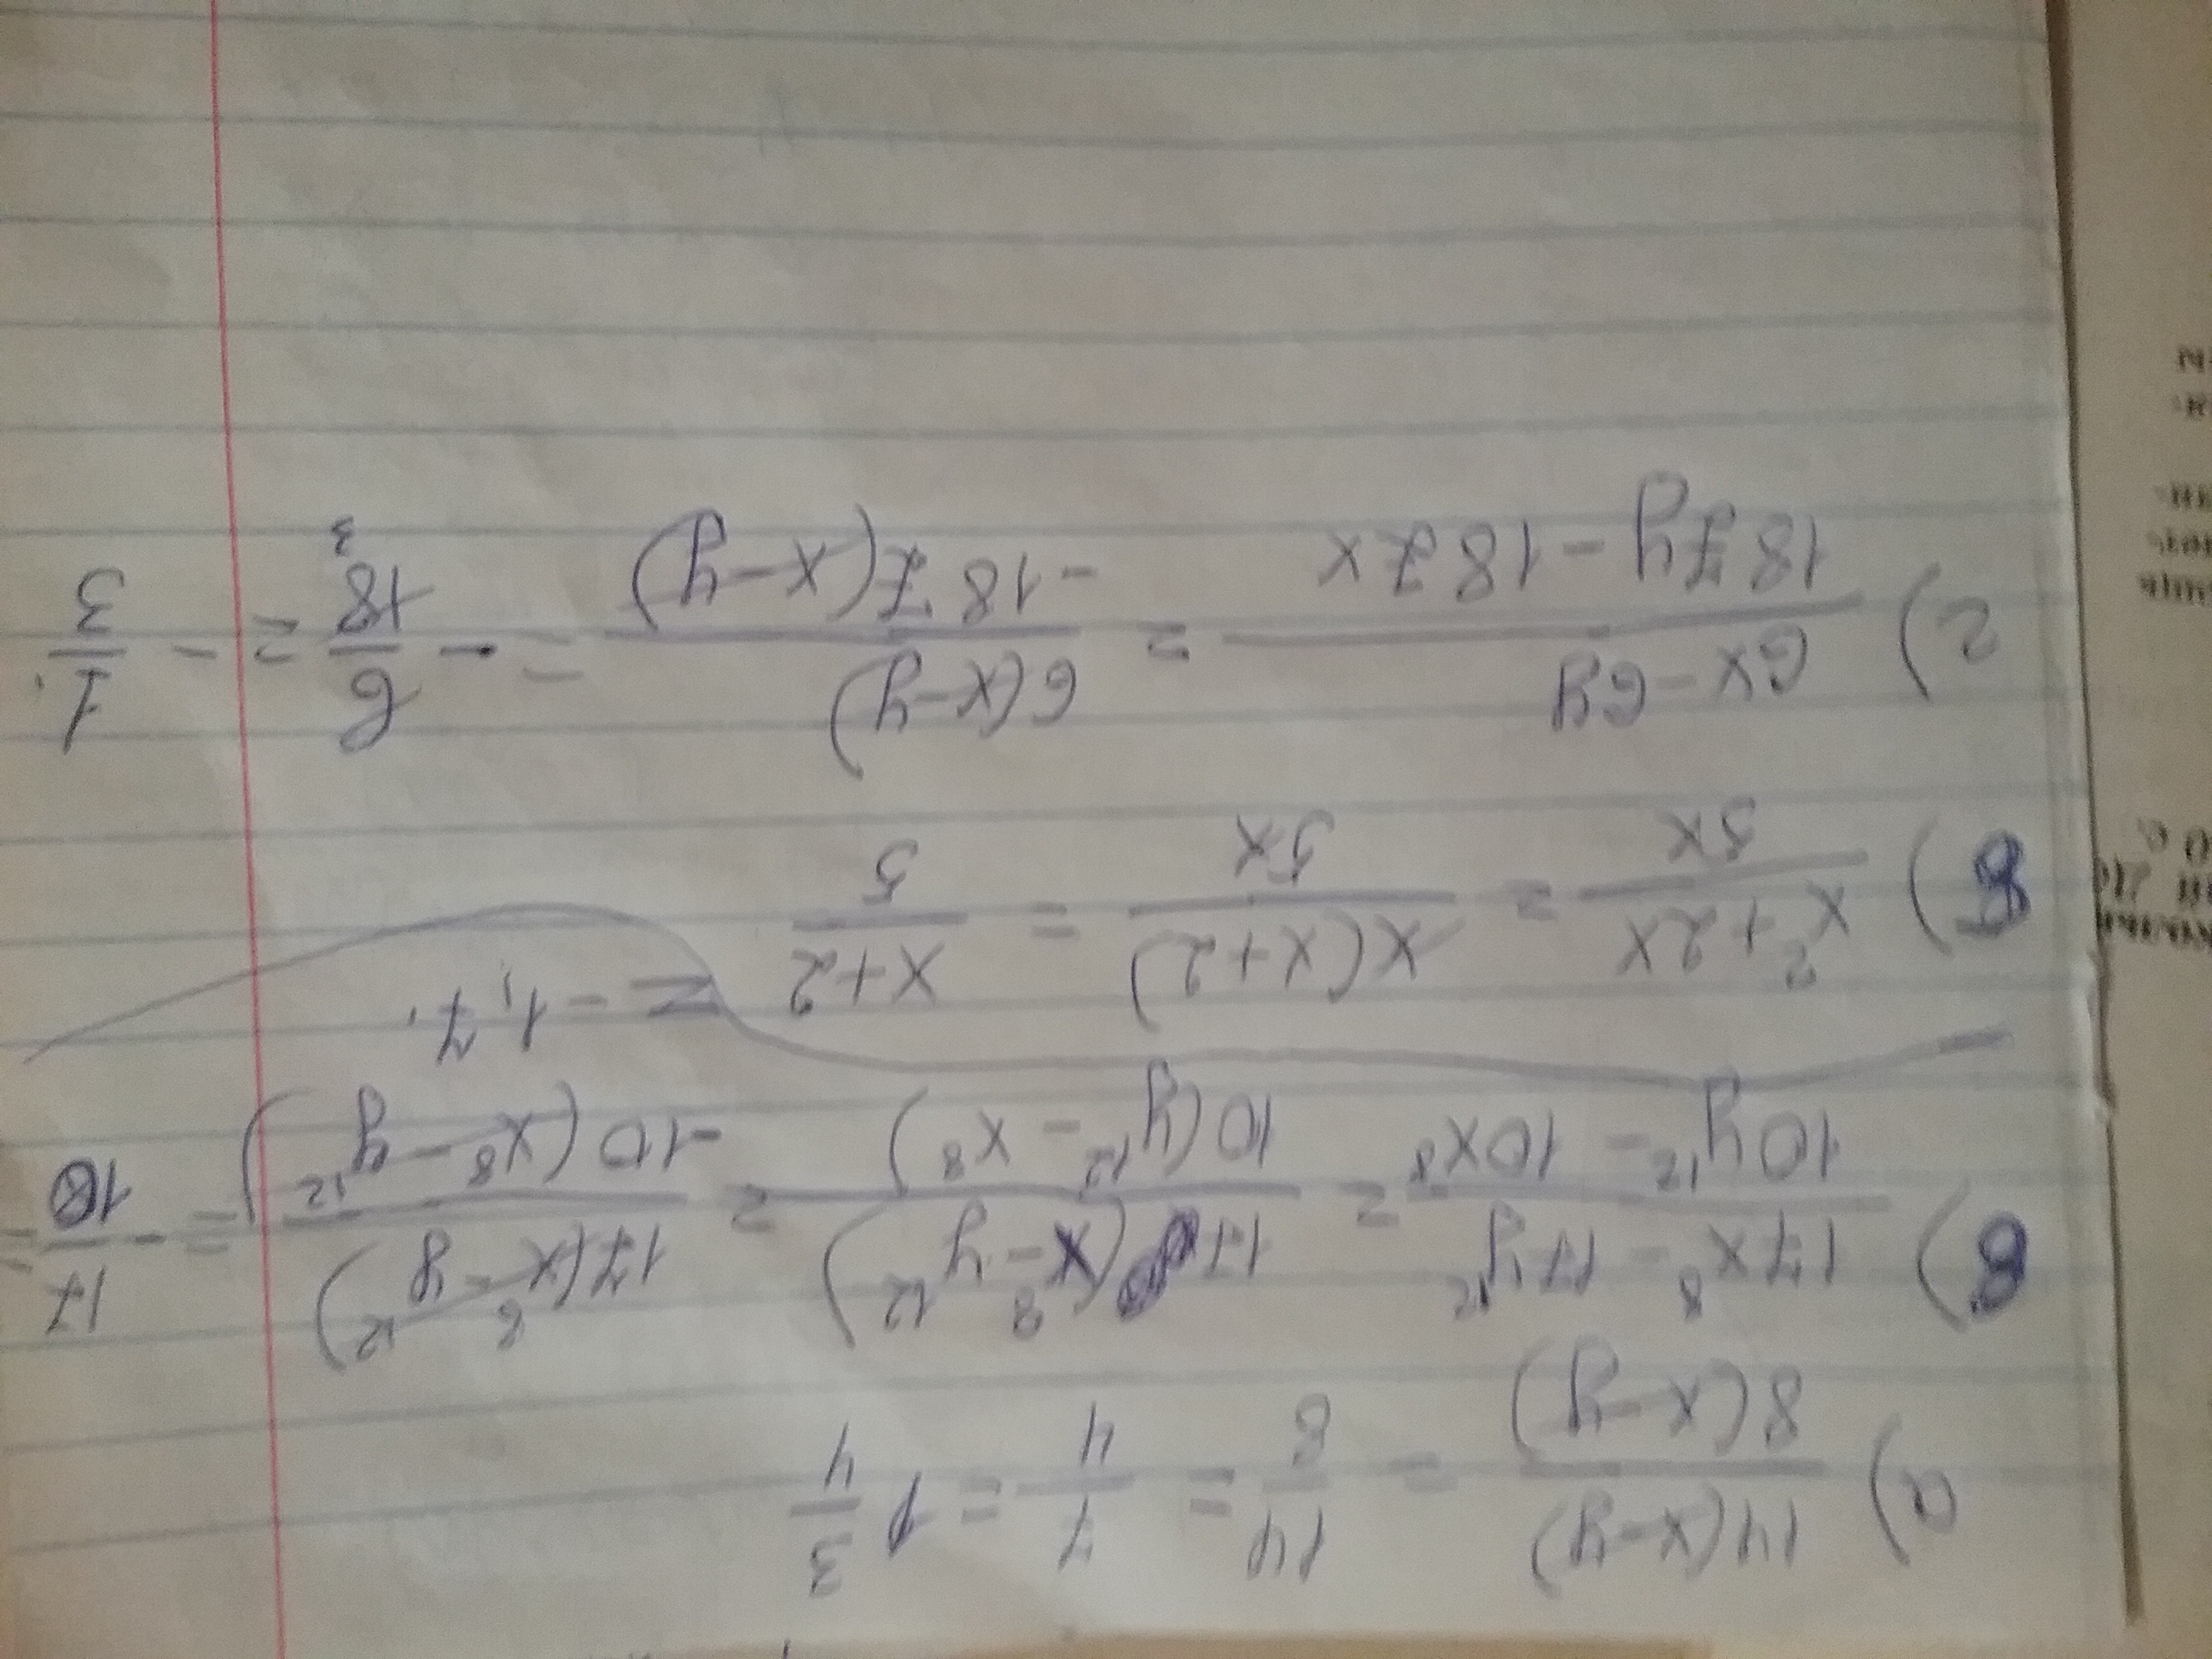 а) 14(x-y)/8(x-y) = 14/8 = 7/4 = 1 3/4
б) 17x⁸ - 17y¹²/10y¹² - 10x⁸ = 17(x⁸-y¹²)/10(y¹² - x⁸) = 17(x⁸-y¹²)/-10(x⁸-y¹²) = -17/10 =
= -1,7.
в) x²+2x/5x = x(x+2)/5x = x+2/5
г) 6x-6y/187y-187x = 6(x-y)/-187(x-y) = -6/18 3 = -1/3.